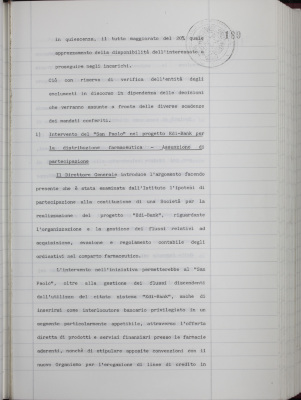 189
in quiescenza, il tutto maggiorato del 20% quale
apprezzamento della disponibilità dell'interessato a
proseguire negli incarichi.
Ciò con riserva di verifica dell'entità degli
emolumenti in discorso in dipendenza delle decisioni
che verranno assunte a fronte delle diverse scadenze
dei mandati conferiti.
Intervento del "San Paolo" nel progetto Edi-Bank per
la distribuzione farmaceutica - Assunzione di
partecipazione
Il Direttore Generale introduce l'argomento facendo
presente che è stata esaminata dall'Istituto l'ipotesi di
partecipazione alla costituzione di una Società per la
realizzazione del progetto "Edi-Bank", riguardante
l'organizzazione e la gestione dei flussi relativi ad
acquisizione, evasione e regolamento contabile degli
ordinativi nel comparto farmaceutico.
L'intervento nell'iniziativa permetterebbe al "San
Paolo", oltre alla gestione dei flussi discendenti
dall'utilizzo del citato sistema "Edi-Bank", anche di
inserirsi come interlocutore bancario privilegiato in un
segmento particolarmente appetibile, attraverso l'offerta
diretta di prodotti e servizi finanziari presso le farmacie
aderenti, nonchè di stipulare apposite convenzioni con il
nuovo Organismo per l'erogazione di linee di credito in